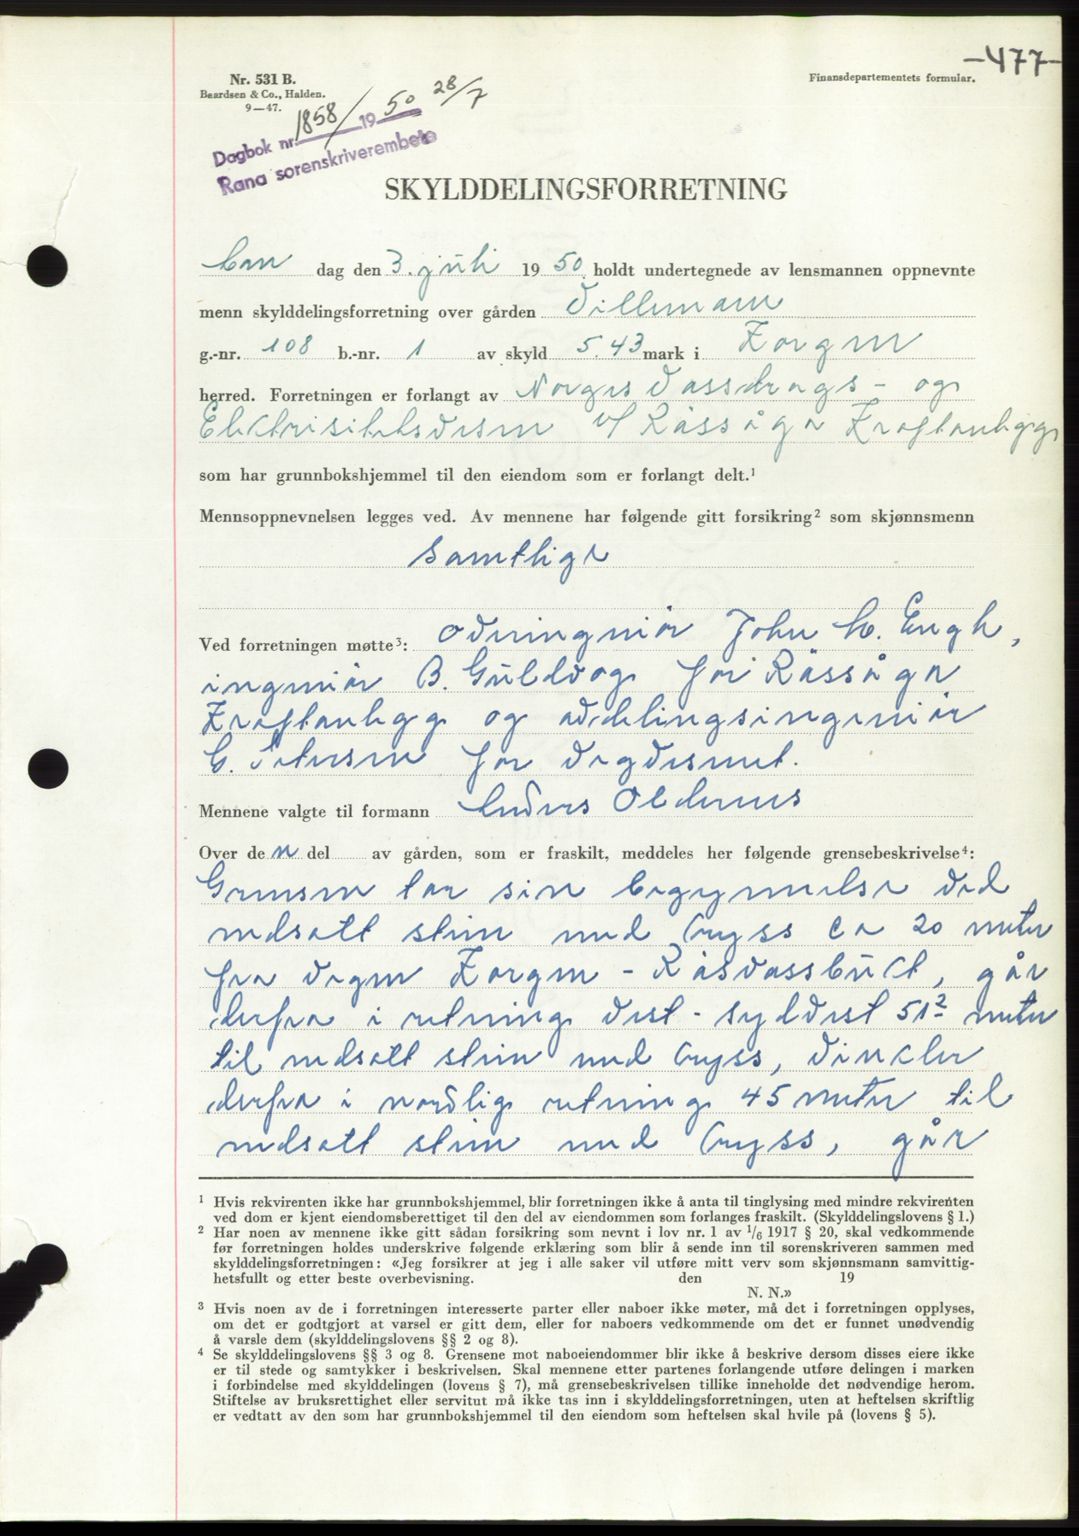 -477-
Nr. 531 B.
Beardsen & Co., Halden.
9—47.
Finansdepartementets formular.
Dagbok nr. 1858/ 1950 28/7
Rana sorenskriverembete
SKYLDDELINGSFORRETNING
dag den 3. juli 1950 holdt undertegnede av lensmannen oppnevnte
menn skylddelingsforretning over gården Villmam
g.-nr. 108 b.-nr. 1 av skyld 5.43 mark i Korgen
herred. Forretningen er forlangt av Norges Vassdrags- og
Elektrisitetsvesen v/ Røssåga Kraftanlegg
som har grunnbokshjemmel til den eiendom som er forlangt delt.¹
Mennsoppnevnelsen legges ved. Av mennene har følgende gitt forsikring² som skjønnsmenn
Samtlige
Ved forretningen møtte³: overingeniør John M. Engh,
ingeniør B. Guldvog for Røssåga
Kraftanlegg og avdelingsingeniør
C. Petersen for Vegvesenet.
Mennene valgte til formann Andres Oldernes
Over den del av gården, som er fraskilt, meddeles her følgende grensebeskrivelse⁴:
Grensen tar sin begynnelse ved
nedsatt stein med kryss ca 20 meter
fra vegen Korgen - Røsvassbukt, går
derfra i retning vest-sydvest 51² meter
til nedsatt stein med kryss, vinkler
derfra i nordlig retning 45 meter til
nedsatt stein med kryss, går
¹ Hvis rekvirenten ikke har grunnbokshjemmel, blir forretningen ikke å anta til tinglysing med mindre rekvirenten
ved dom er kjent eiendomsberettiget til den del av eiendommen som forlanges fraskilt. (Skylddelingslovens § 1.)
² Har noen av mennene ikke gitt sådan forsikring som nevnt i lov nr. 1 av 1/6 1917 § 20, skal vedkommende
før forretningen holdes underskrive følgende erklæring som blir å sende inn til sorenskriveren sammen med
skylddelingsforretningen: «Jeg forsikrer at jeg i alle saker vil utføre mitt verv som skjønnsmann samvittig-
hetsfullt og etter beste overbevisning. den 19
N. N.»
³ Hvis noen av de i forretningen interesserte parter eller naboer ikke møter, må det i forretningen opplyses,
om det er godtgjort at varsel er gitt dem, eller for naboers vedkommende om det er funnet unødvendig
å varsle dem (skylddelingslovens §§ 2 og 8).
⁴ Se skylddelingslovens §§ 3 og 8. Grensene mot naboeiendommer blir ikke å beskrive dersom disses eiere ikke
er til stede og samtykker i beskrivelsen. Skal mennene etter partenes forlangende utføre delingen i marken
i forbindelse med skylddelingen (lovens § 7), må grensebeskrivelsen tillike inneholde det nødvendige herom.
Stiftelse av bruksrettighet eller servitut må ikke tas inn i skylddelingsforretningen, uten at heftelsen skriftlig
er vedtatt av den som har grunnbokshjemmel til den eiendom som heftelsen skal hvile på (lovens § 5).